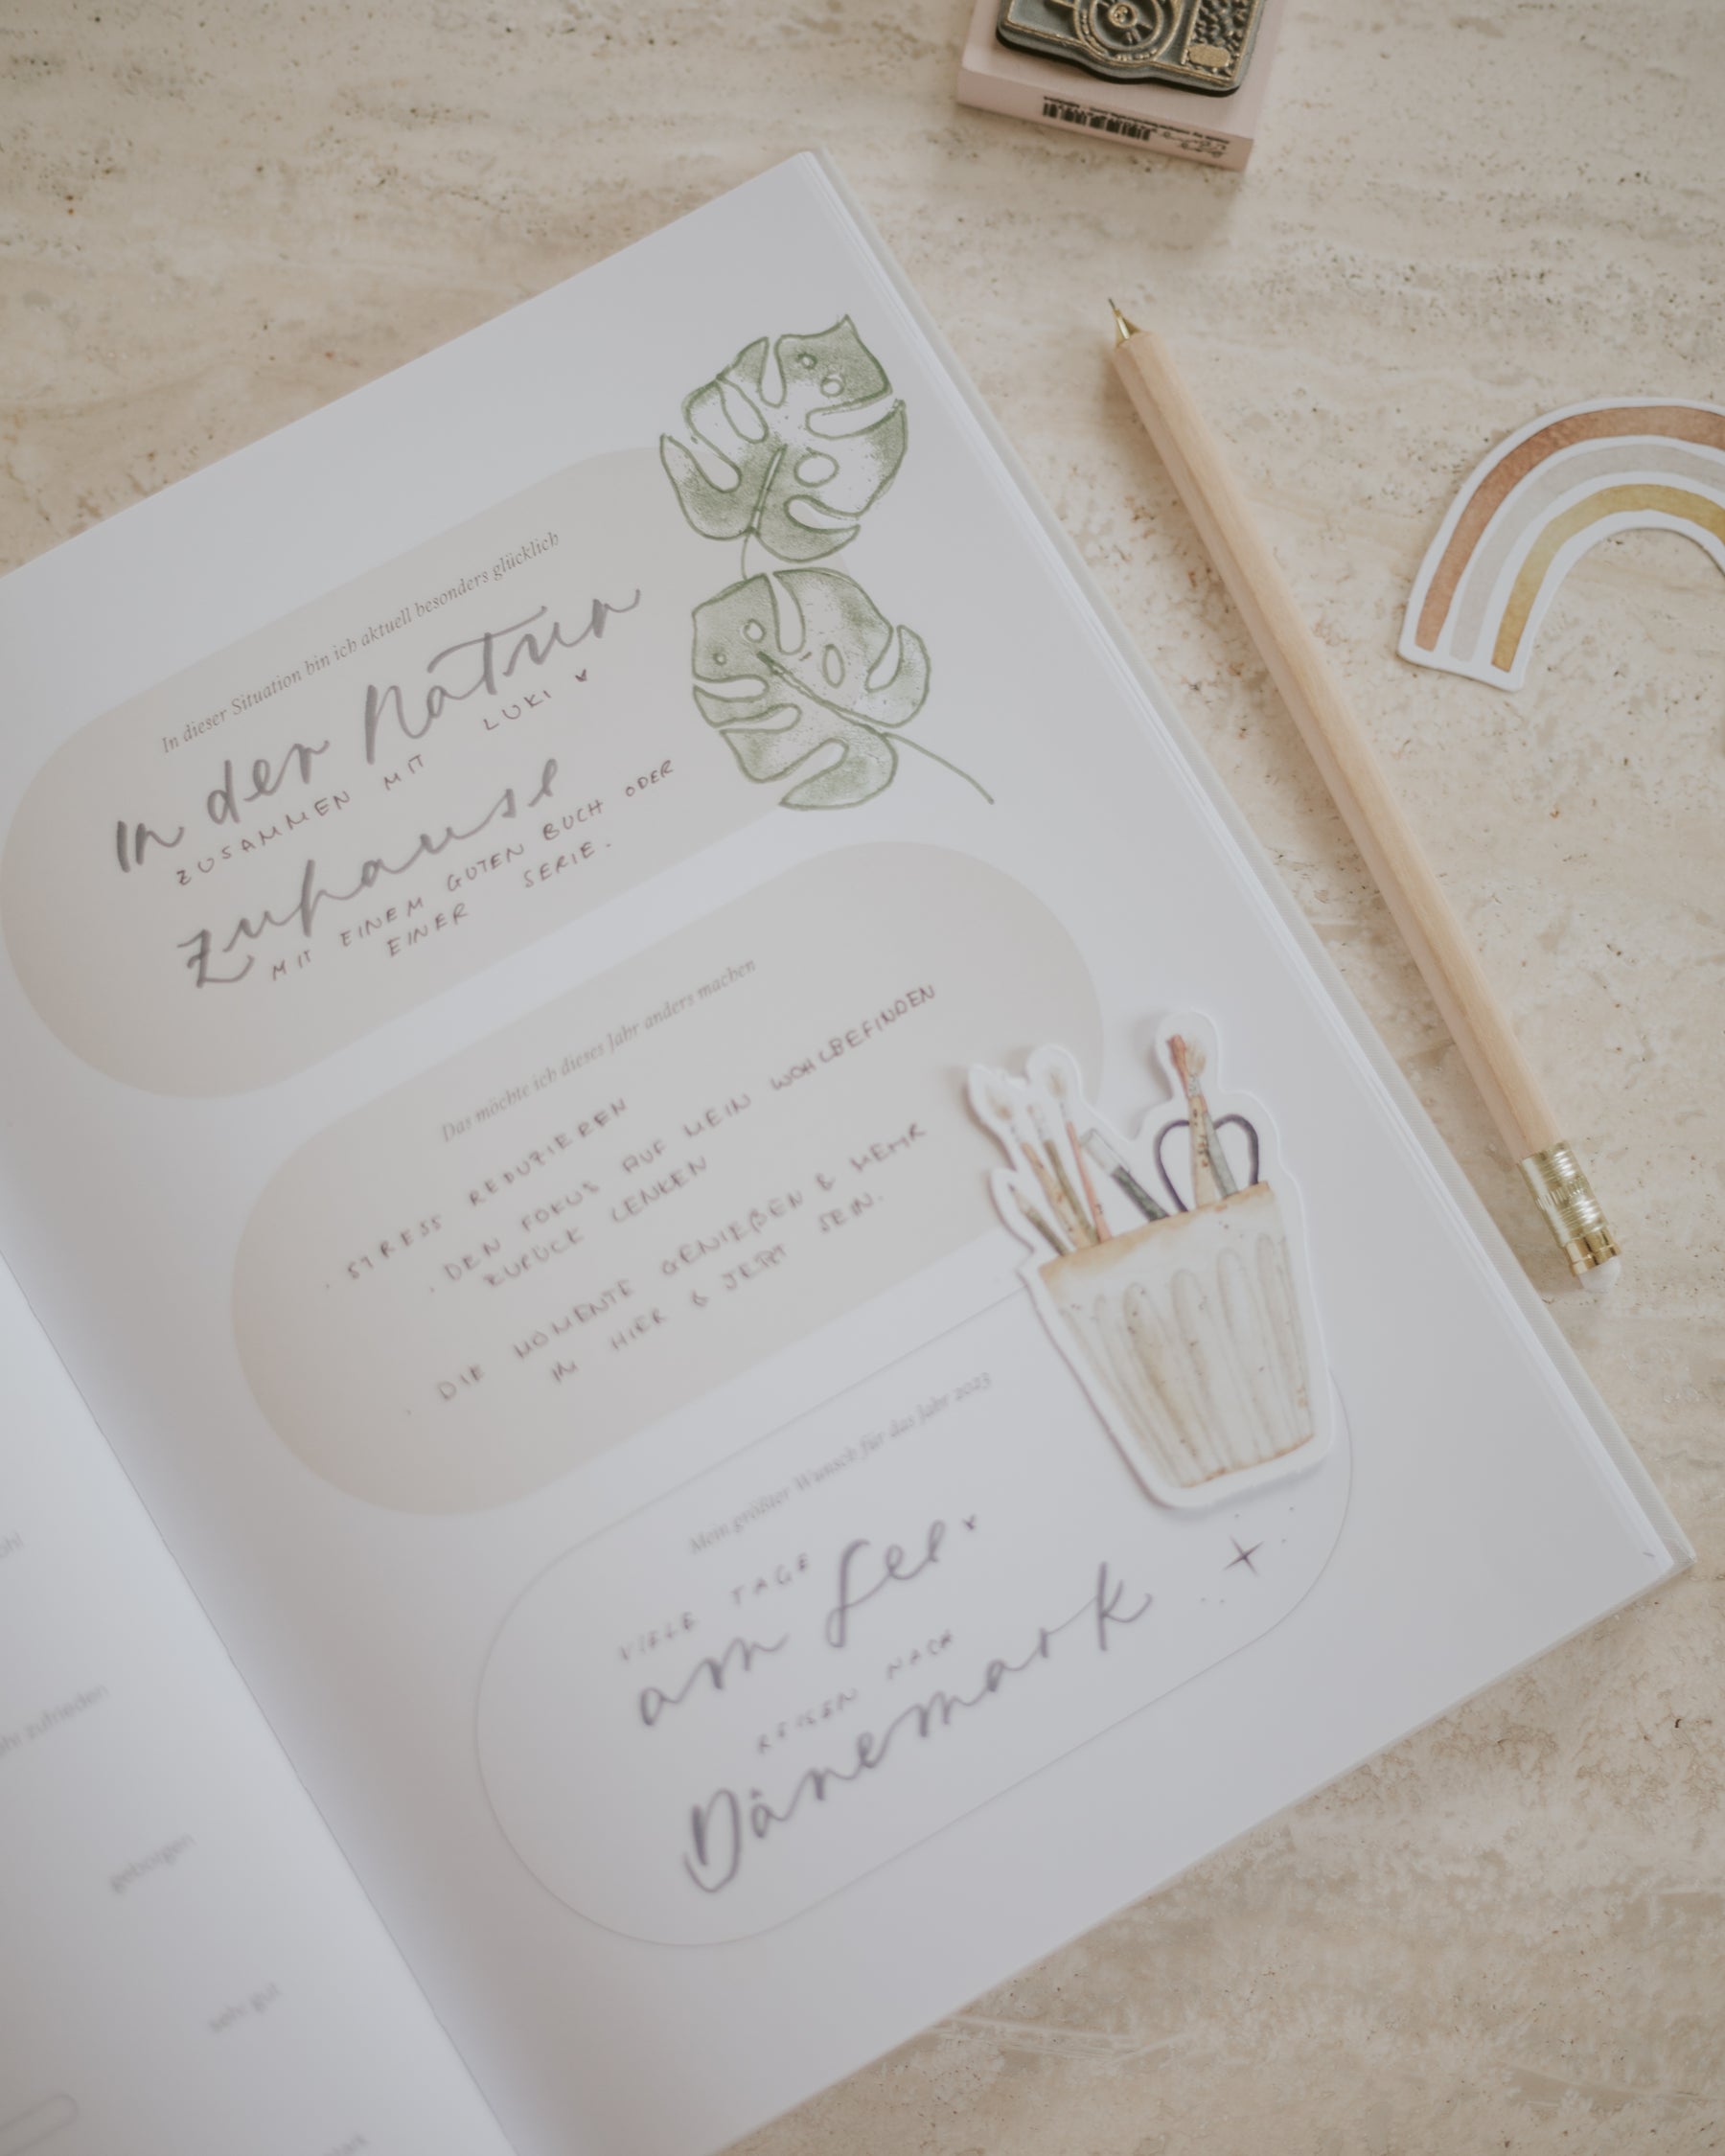 In dieser Situation bin ich aktuell besonders glücklich
In der Natur
ZUSAMMEN MIT LUKI
zuhause
MIT EINEM GUTEN BUCH ODER
EINER SERIE.
Das möchte ich dieses Jahr anders machen
· STRESS REDUZIEREN
· DEN FOKUS AUF MEIN WOHLBEFINDEN
ZURÜCK LENKEN
· DIE MOMENTE GENIEßEN & MEHR
IM HIER & JETZT SEIN.
Mein größter Wunsch für das Jahr 2023
VIELE TAGE
am See
REISEN NACH
Dänemark
zufrieden
geborgen
sehr gut